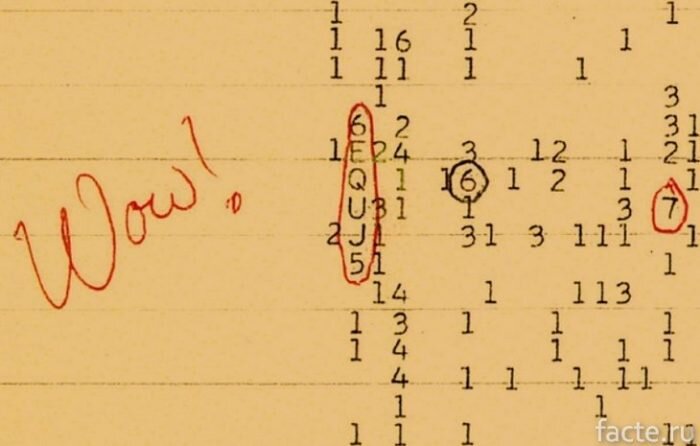 1 2 1
1 16 1 1
1 11 1 1
1 3
6 2 31
1 E 2 4 3 12 1 21
Q 1 16 1 2 1 1
Wow! U 31 1 3 7
2 J 1 31 3 111 1
5 1 1
14 1 113
1 3 1 1 1
1 4 1 1 1
4 1 1 1 11
1 1
1 1 1 11
facte.ru